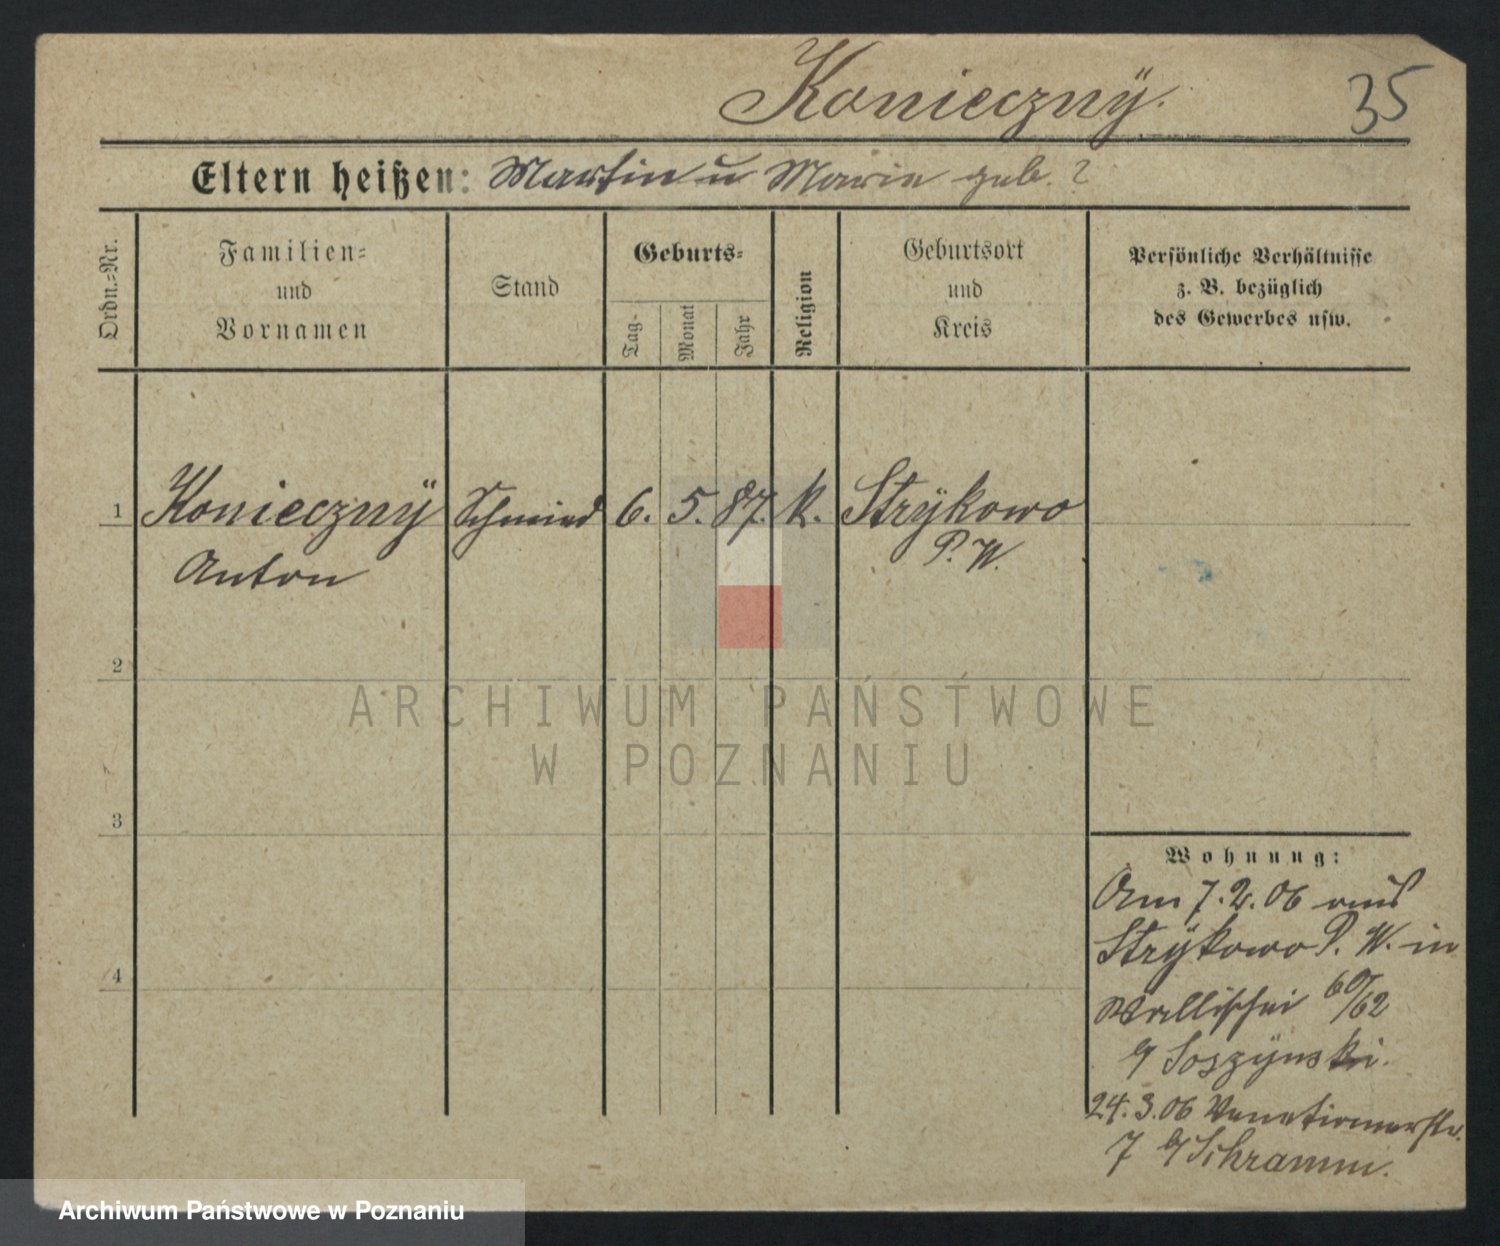 Konieczny.
35
Eltern heißen: Martin u Marie geb. ?
Ordn.-Nr.
Familien-
und
Vornamen
Stand
Geburts-
Tag
Monat
Jahr
Religion
Geburtsort
und
Kreis
Persönliche Verhältnisse
z. B. bezüglich
des Gewerbes usw.
1 Konieczny Schmied 6. 5. 87. k. Strÿkowo
Anton P. W.
2
3
4
Wohnung:
Am 7.2.06 aus
Strÿkowo P. W. in
Wallischei 60/62
b/ Soszÿnski.
24.3.06 Venetianerstr.
7 b/ Schramm.
ARCHIWUM PAŃSTWOWE
W POZNANIU
Archiwum Państwowe w Poznaniu